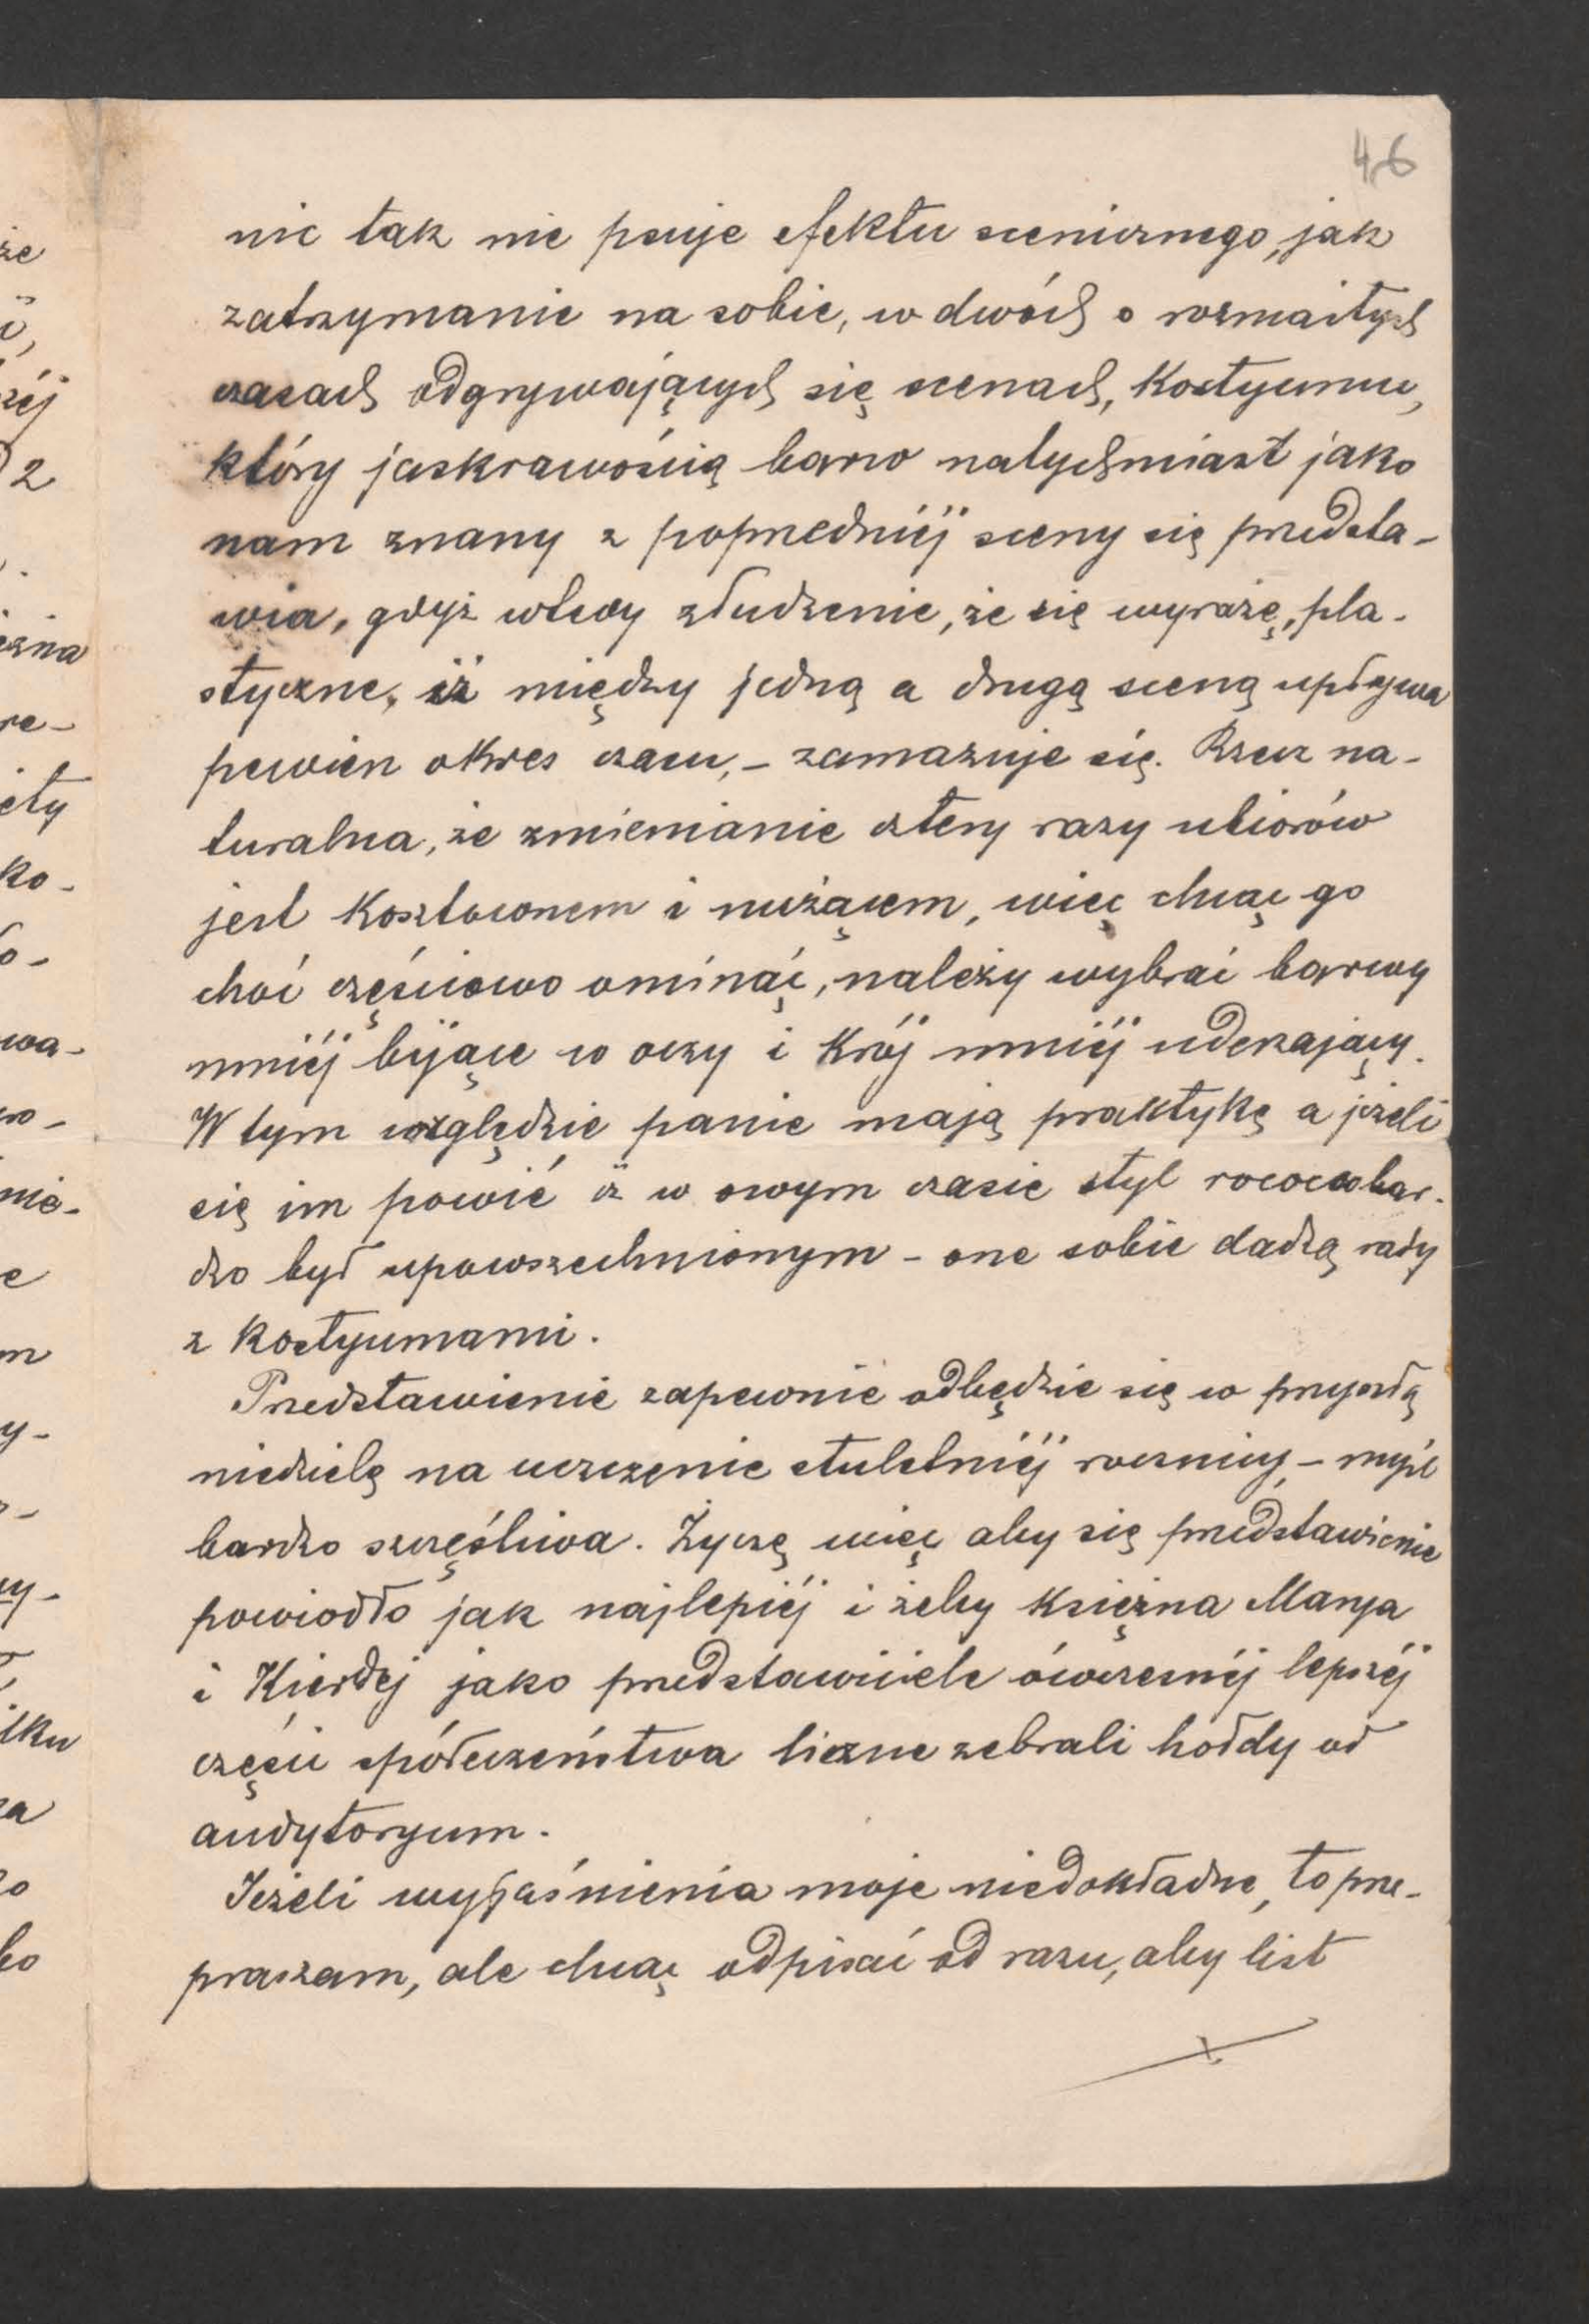 46
nic tak nie psuje efektu scenicznego, jak
zatrzymanie na sobie, w dwóch o rozmaitych
czasach odgrywających się scenach, kostyumu,
który jaskrawością barw natychmiast jako
nam znany z poprzedniéj sceny się przedsta-
wia, gdyż wtedy złudzenie, że się wyrażę, pla-
styczne, iż między jedną a drugą sceną upływa
pewien okres czasu, – zamazuje się. Rzecz na-
turalna, że zmienianie cztery razy ubiorów
jest kosztownem i nużącem, więc chcąc go
choć częściowo ominąć, należy wybrać barwy
mniéj bijące w oczy i krój mniéj uderzający.
W tym względzie panie mają praktykę a jeżeli
się im powié iż w owym czasie styl rococo bar-
dzo był upowszechnionym – one sobie dadzą rady
z kostyumami.
Przedstawienie zapewnie odbędzie się w przyszłą
niedzielę na uczczenie stuletniéj rocznicy – myśl
bardzo szczęśliwa. Życzę więc aby się przedstawienie
powiodło jak najlepiéj i żeby księżna Marya
i Kierdej jako przedstawiciele ówczesnéj lepszéj
części społeczeństwa liczne zebrali hołdy od
audytoryum.
Jeżeli wyjaśnienia moje niedokładne, to prze-
praszam, ale chcąc odpisać od razu, aby list
że
zéj
z
czna
re-
ety
ko-
o-
wa-
wo-
nie-
e
m
y-
cy-
ilku
za
zo
bo